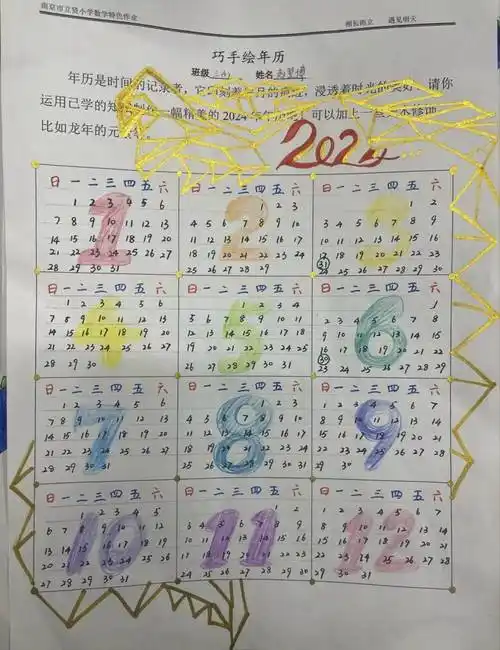 南京市立贤小学数学特色作业
相长而立 遇见明天
巧手绘年历
班级 姓名
年历是时间的记录者，它 刻着 月的 浸透着时光的 请你
运用已学的知 一幅精美的2024年年历 可以加上一些
比如龙年的元
2024
日 一 二 三 四 五 六
1 2 3 4 5 6
7 8 9 10 11 12 13
14 15 16 17 18 19 20
21 22 23 24 25 26 27
28 29 30 31
1
日 一 二 三 四 五 六
1 2 3
4 5 6 7 8 9 10
11 12 13 14 15 16 17
18 19 20 21 22 23 24
25 26 27 28 29
2
日 一 二 三 四 五 六
1 2
3 4 5 6 7 8 9
10 11 12 13 14 15 16
17 18 19 20 21 22 23
31
24 25 26 27 28 29 30
3
日 一 二 三 四 五 六
1 2 3 4 5 6
7 8 9 10 11 12 13
14 15 16 17 18 19 20
21 22 23 24 25 26 27
28 29 30
4
日 一 二 三 四 五 六
1 2 3 4
5 6 7 8 9 10 11
12 13 14 15 16 17 18
19 20 21 22 23 24 25
26 27 28 29 30 31
5
日 一 二 三 四 五 六
1
2 3 4 5 6 7 8
9 10 11 12 13 14 15
16 17 18 19 20 21 22
30
23 24 25 26 27 28 29
6
日 一 二 三 四 五 六
1 2 3 4 5 6
7 8 9 10 11 12 13
14 15 16 17 18 19 20
21 22 23 24 25 26 27
28 29 30 31
7
日 一 二 三 四 五 六
1 2 3
4 5 6 7 8 9 10
11 12 13 14 15 16 17
18 19 20 21 22 23 24
25 26 27 28 29 30 31
8
日 一 二 三 四 五 六
1 2 3 4 5 6 7
8 9 10 11 12 13 14
15 16 17 18 19 20 21
22 23 24 25 26 27 28
29 30
9
日 一 二 三 四 五 六
1 2 3 4 5
6 7 8 9 10 11 12
13 14 15 16 17 18 19
20 21 22 23 24 25 26
27 28 29 30 31
10
日 一 二 三 四 五 六
1 2
3 4 5 6 7 8 9
10 11 12 13 14 15 16
17 18 19 20 21 22 23
24 25 26 27 28 29 30
11
日 一 二 三 四 五 六
1 2 3 4 5 6 7
8 9 10 11 12 13 14
15 16 17 18 19 20 21
22 23 24 25 26 27 28
29 30 31
12